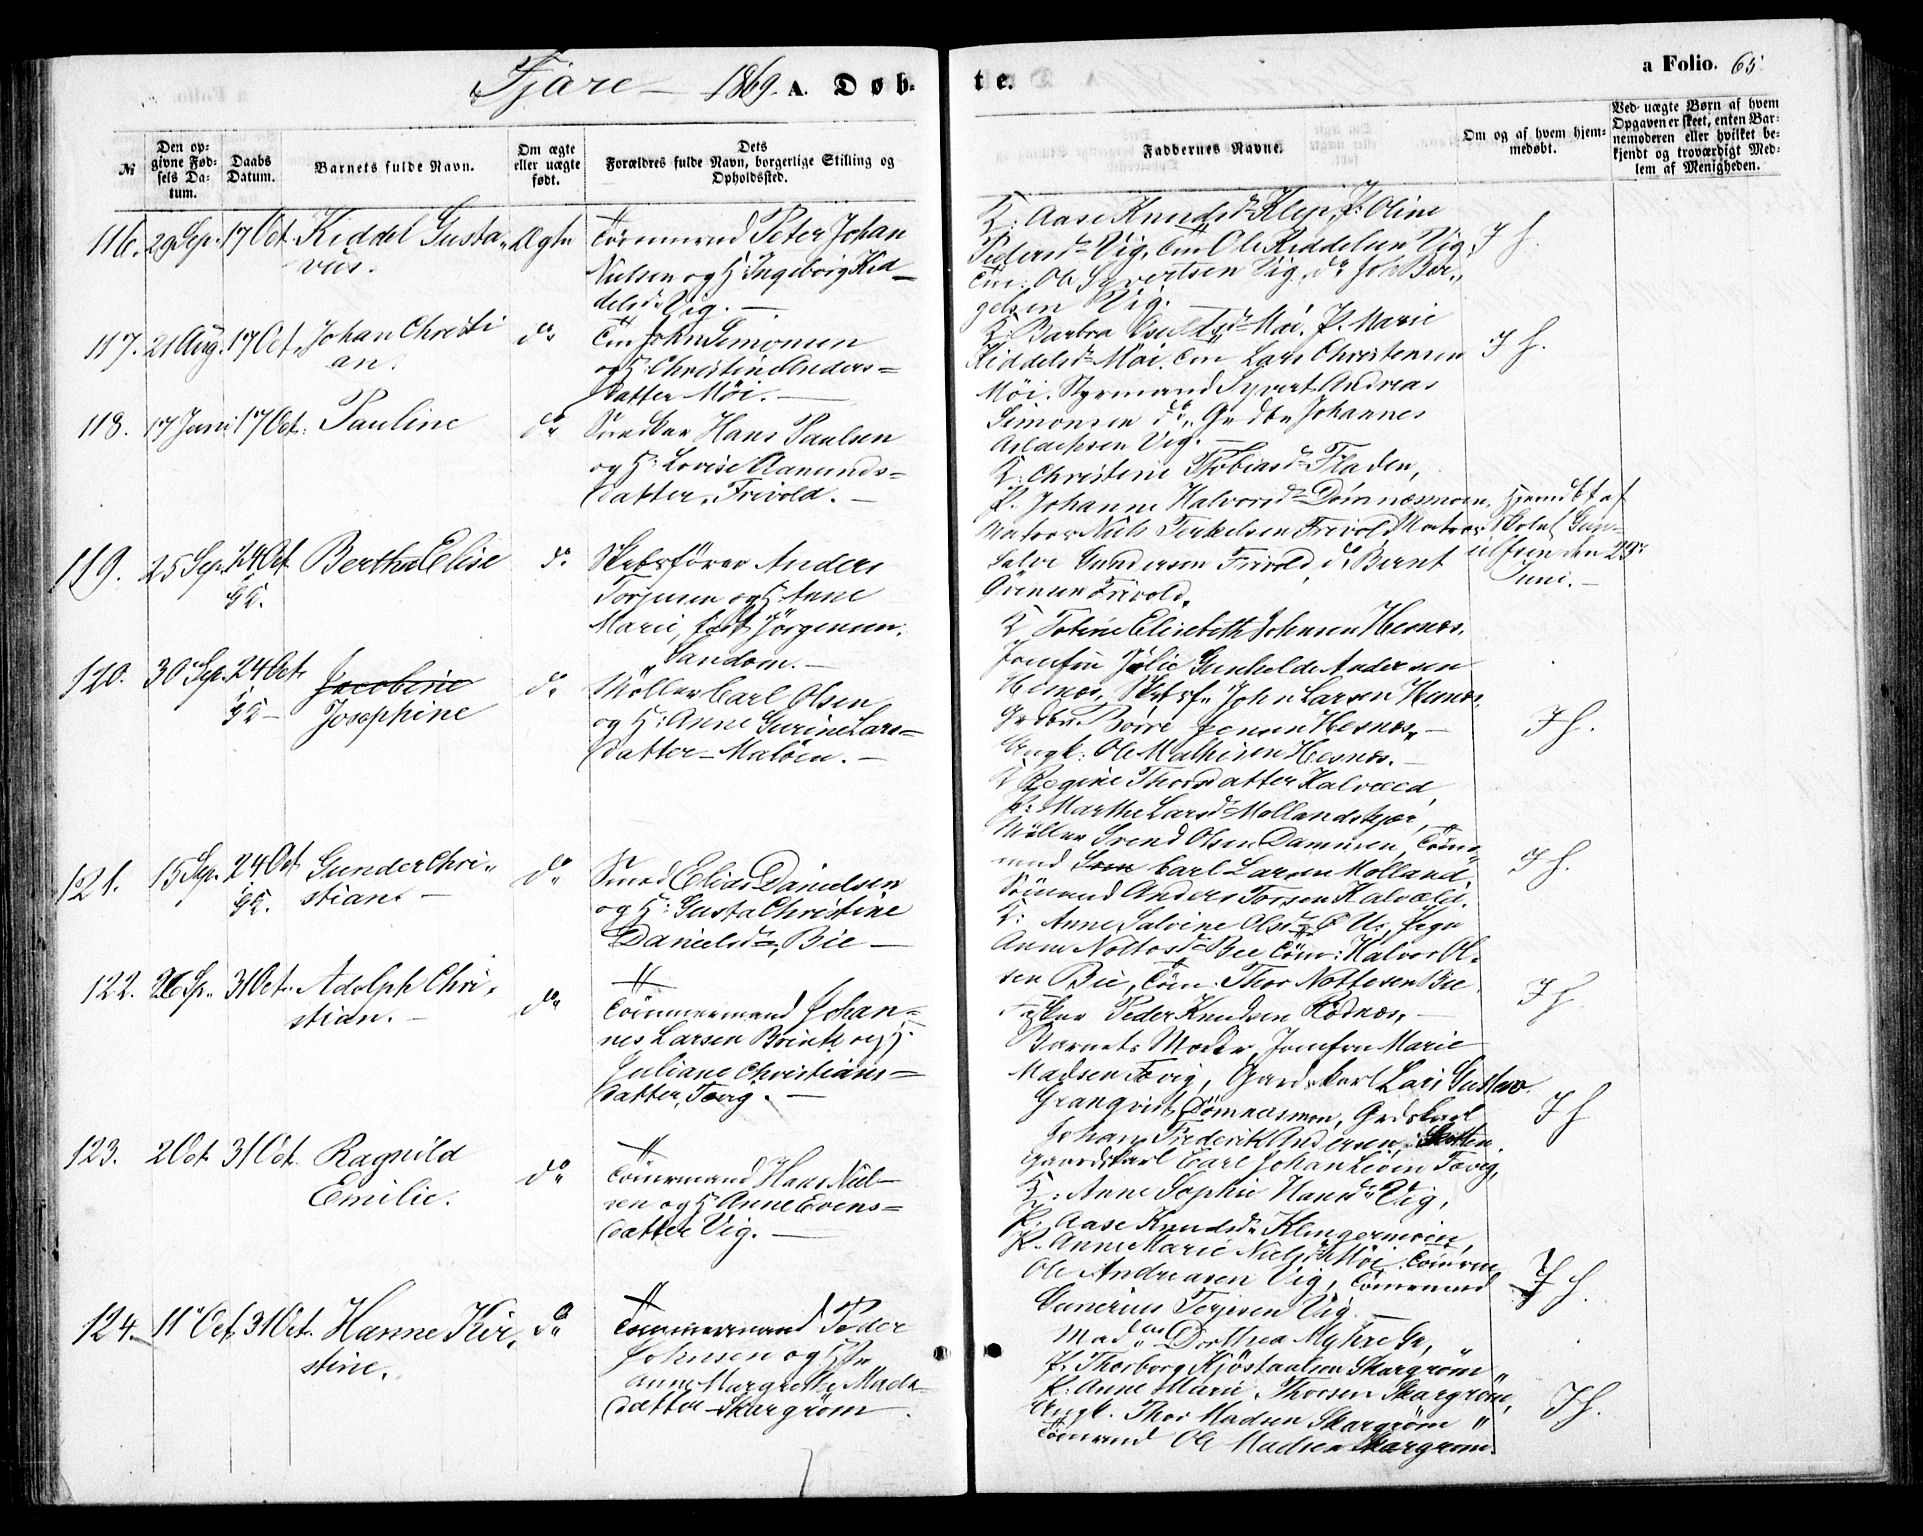 Fjære — 1869. A. Døb-
te.
a Folio. 65
№
Den op-
givne Fød-
sels Da-
tum.
Daabs
Datum.
Barnets fulde Navn.
Om ægte
eller uægte
født.
Dets
Forældres fulde Navn, borgerlige Stilling og
Opholdssted.
Faddernes Navne.
Om og af hvem hjem-
medøbt.
Ved uægte Børn af hvem
Opgaven er skeet, enten Bar-
nemoderen eller hvilket be-
kjendt og troværdigt Med-
lem af Menigheden.
116. 29 Sep. 17 Oct. Kiddel Gusta-
vus.
Ægte
Tömmermand Peter Johan
Nielsen og H: Ingeborg Kid-
delsdr Vig. —
K: Aase Knudsdr Klep, P. Oline
Pedersdr Vig, Töm Ole Kiddelsen Vig,
Töm: Ole Syvertsen Vig, do Joh Ber-
gelsen Vig.
I h.
117. 21 Aug. 17 Oct. Johan Christi
an.
do
Töm John Simonsen
og H: Christine Anders-
datter Möi. —
K: Barbra Osuldsdr Möi. P. Marie
Kiddelsdr Möi. Töm Lars Christensen
Möi. Styrmand Syvert Andreas
Simonsen do, Grdbr Johannes
Aslachsen Vig. —
I h.
118. 17 Juni 17 Oct. Pauline
do
Snedker Hans Paulsen
og H: Lovise Aamunds-
datter, Frivold. —
K: Christine Tobiasdr Fladen,
P. Johanne Halvorsdr Dömnesmoen,
Matros Niels Terkelsen Frivold, Matros
Salve Gundersen Frivold, do Bernt
Frivold.
Hjemdbt af
Skolel Gun-
ufsen den 29
Juni. —
119. 25 Sep. 24 Oct.
Bertha Elise
do
Skibsförer Anders
Torjusen og H: Anne
Marie, født Jörgensen,
Sandom. —
K Tobine Elisebeth Johnsen Hesnæs,
Jomfru Julie Gunhilde Andersen
Hesnæs, Skibsf. John Larsen Hesnæs,
Grdbr. Börre Jensen Hesnæs, —
Ungk: Ole Mathisen Hesnæs. —
I h.
120. 30 Sep. 24 Oct.
Jacobine
Josephine
do
Möller Carl Olsen
og H: Anne Gurine Lars-
datter — Malöen. —
K Regine Thorsdatter Kalvæld,
P: Marthe Larsdr Mollandskjær,
Möller Svend Olsen Dammen, Töm-
mand Carl Larsen Molland,
Sömand Anders Torsen Kalvæld.
I h.
121. 15 Sep. 24 Oct
Gunder Chri-
stian. —
do
Smed Elias Danielsen
og H: Gusta Christine
Danielsdr, Bie —
K: Anne Salvine Olsdr
Anne Nottosdr Bie Töm: Halvor Ol-
sen Bie, Töm: Thor Nottesen Bie
Peder Knudsen Rødnæs, —
I h
122. 26 Sp. 31 Oct. Adolph Chri-
stian. —
do
Tömmermand Johan-
nes Larsen Brink og H.
Juliane Christians-
datter, Fævig. —
Barnets Moder, Jomfru Marie
Madsen Fævig, Gaardskarl Lars Gustav
Granqvist, Dömnesmoen, Grdskarl
Johan Frederik Andersen,
Gaardskarl Carl Johan Fævig,
I h
123. 2 Oct. 31 Oct. Ragnild
Emilie.
do
Tömmermand Hans Niel-
sen og H Anne Evens-
datter Vig. —
K: Anne Sophie Hansdr Vig,
P. Aase Knudsdr Klingermoen,
P. Anne Marie Nielsdr Möi. Tömrm
Ole Andreasen Vig, Tömmermand
Gunerius Terjesen Vig. —
I h.
124. 11 Oct. 31 Oct. Hanne Kir-
stine.
do
Tömmermand Peder
Johnsen og H
Anne Margrethe Mads-
datter — Skargröm.
Madm Dorthea Myhre Gr,
P. Thorborg Kjöstaulsen Skargröm
P. Anne Marie Thorsen Skargröm,
Ungk. Thor Madsen Skargröm "
Tömmand Ole Madsen Skargröm.
I h.